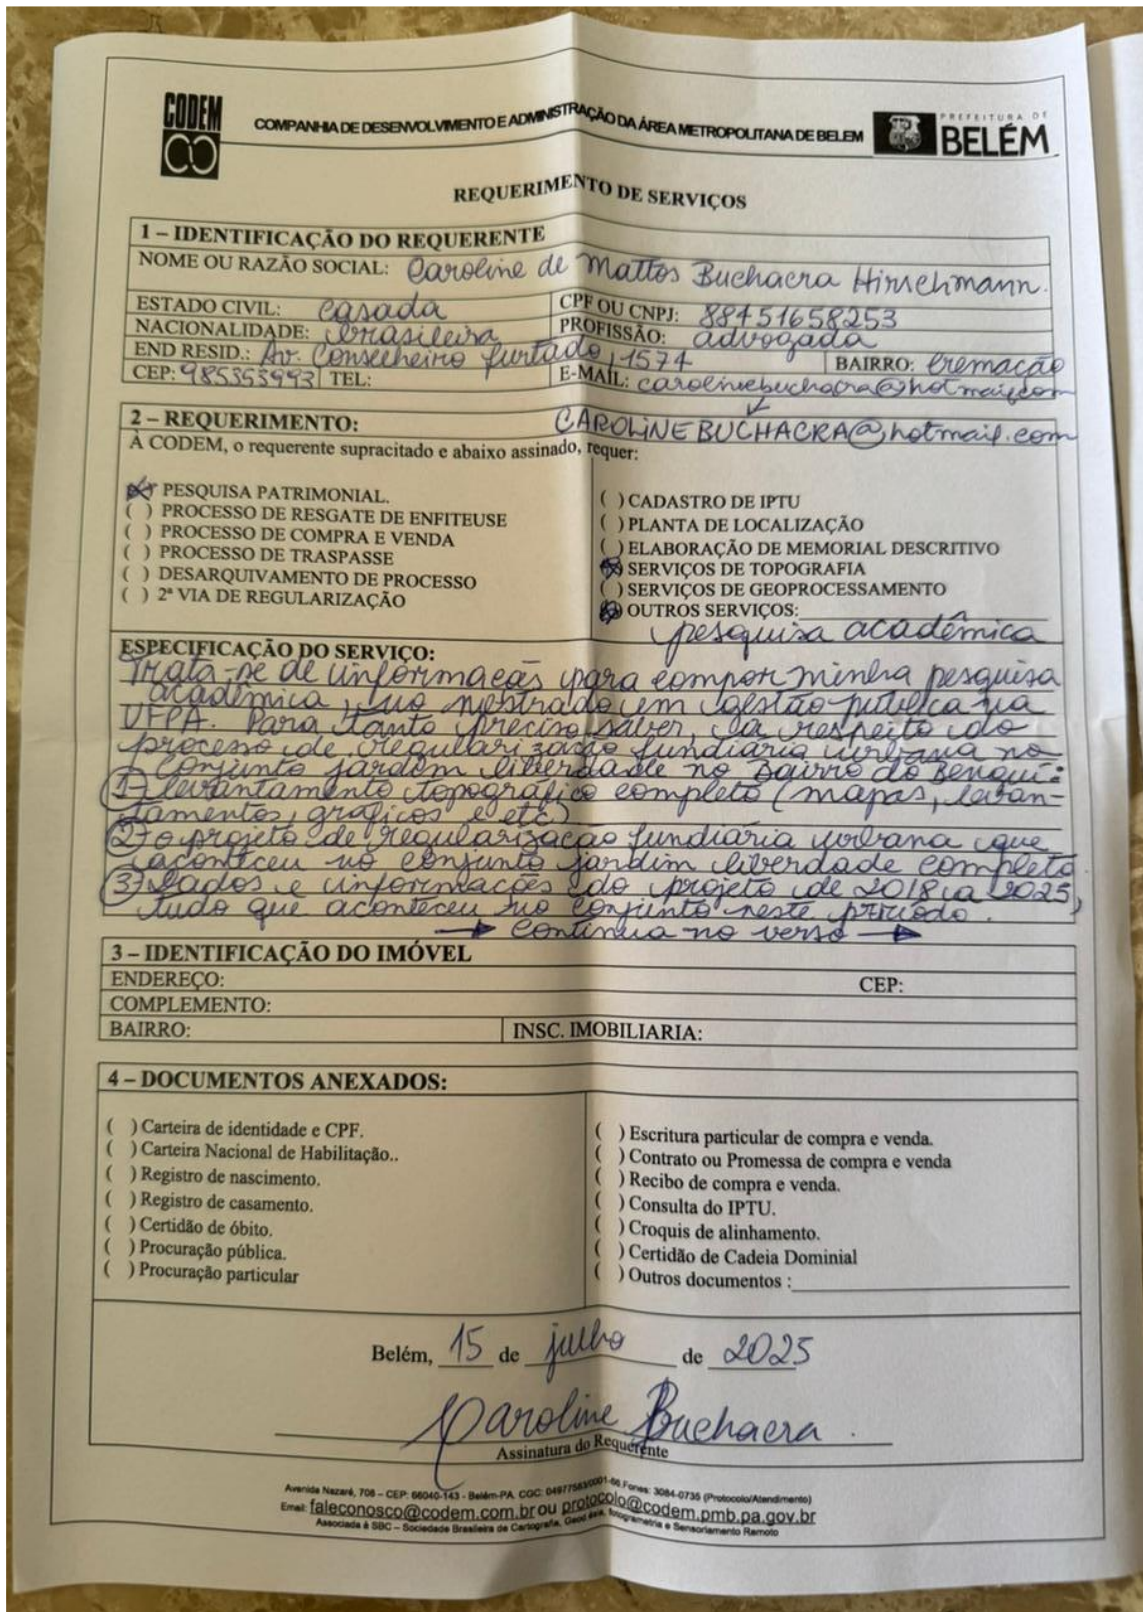 CODEM
COMPANHIA DE DESENVOLVIMENTO E ADMINISTRAÇÃO DA ÁREA METROPOLITANA DE BELEM
PREFEITURA DE
BELÉM
REQUERIMENTO DE SERVIÇOS
1 – IDENTIFICAÇÃO DO REQUERENTE
NOME OU RAZÃO SOCIAL: Caroline de Mattos Buchacra Hirschmann.
ESTADO CIVIL: casada CPF OU CNPJ: 88451658253
NACIONALIDADE: brasileira PROFISSÃO: advogada
END RESID.: Av. Conselheiro furtado, 1574 BAIRRO: Cremação
CEP: 985353993 TEL: E-MAIL: carolinebuchacra@hotmail.com
2 – REQUERIMENTO: CAROLINEBUCHACRA@hotmail.com
À CODEM, o requerente supracitado e abaixo assinado, requer:
(X) PESQUISA PATRIMONIAL.
( ) PROCESSO DE RESGATE DE ENFITEUSE
( ) PROCESSO DE COMPRA E VENDA
( ) PROCESSO DE TRASPASSE
( ) DESARQUIVAMENTO DE PROCESSO
( ) 2ª VIA DE REGULARIZAÇÃO
( ) CADASTRO DE IPTU
( ) PLANTA DE LOCALIZAÇÃO
( ) ELABORAÇÃO DE MEMORIAL DESCRITIVO
(X) SERVIÇOS DE TOPOGRAFIA
( ) SERVIÇOS DE GEOPROCESSAMENTO
(X) OUTROS SERVIÇOS:
pesquisa acadêmica
ESPECIFICAÇÃO DO SERVIÇO:
Trata-se de informações para compor minha pesquisa
acadêmica, no mestrado em gestão pública na
UFPA. Para tanto preciso saber, a respeito do
processo de regularização fundiária urbana no
conjunto jardim liberdade no Bairro do Benguí:
1- levantamento topográfico completo (mapas, levan-
tamentos, gráficos e etc)
2- o projeto de regularização fundiária urbana que
aconteceu no conjunto jardim liberdade completo
3- Dados e informações do projeto de 2018 a 2025,
tudo que aconteceu no conjunto neste período.
→ Continua no verso →
3 – IDENTIFICAÇÃO DO IMÓVEL
ENDEREÇO: CEP:
COMPLEMENTO:
BAIRRO: INSC. IMOBILIARIA:
4 – DOCUMENTOS ANEXADOS:
( ) Carteira de identidade e CPF.
( ) Carteira Nacional de Habilitação..
( ) Registro de nascimento.
( ) Registro de casamento.
( ) Certidão de óbito.
( ) Procuração pública.
( ) Procuração particular
( ) Escritura particular de compra e venda.
( ) Contrato ou Promessa de compra e venda
( ) Recibo de compra e venda.
( ) Consulta do IPTU.
( ) Croquis de alinhamento.
( ) Certidão de Cadeia Dominial
( ) Outros documentos :
Belém, 15 de julho de 2025
Caroline Buchacra.
Assinatura do Requerente
Avenida Nazaré, 708 – CEP: 66040-143 - Belém-PA. CGC: 04977583/0001-66.Fones: 3084-0735 (Protocolo/Atendimento)
Email: faleconosco@codem.com.br ou protocolo@codem.pmb.pa.gov.br
Associada à SBC – Sociedade Brasileira de Cartografia, Geodésia, fotogrametria e Sensoriamento Remoto